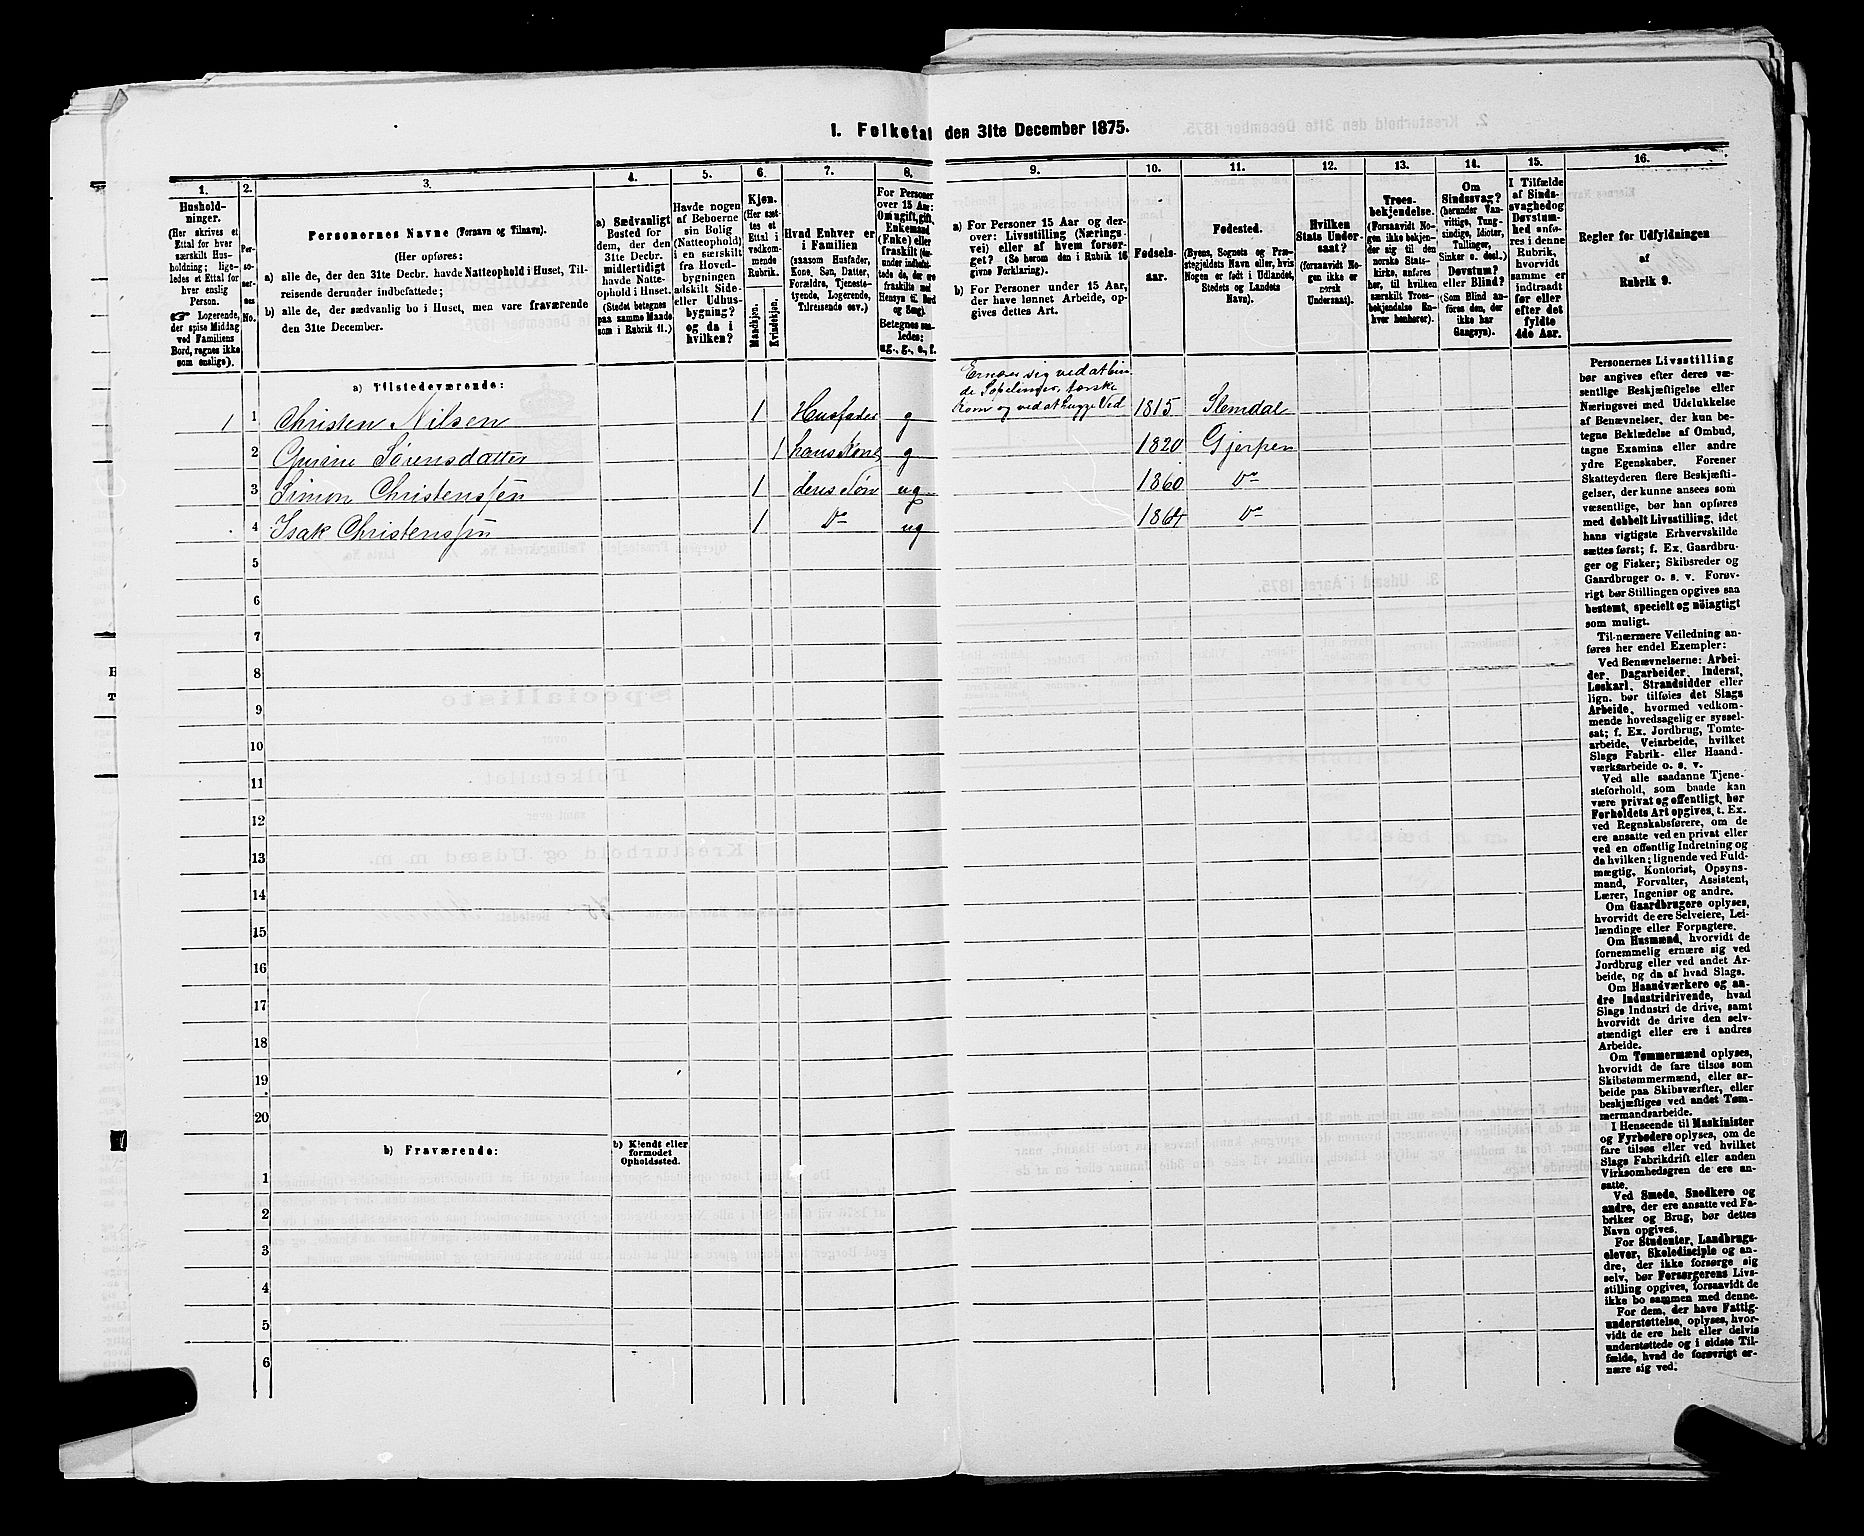 1. Folketal den 31te December 1875.
1. 2. 3. 4. 5. 6. 7. 8. 9. 10. 11. 12. 13. 14. 15. 16.
Hushold-
ninger.
(Her skrives et
Ettal for hver
særskilt Hus-
holdning; lige-
ledes et Ettal for
hver enslig
Person.
☞ Logerende,
der spise Middag
ved Familiens
Bord, regnes ikke
som enslige).
Personernes Navne (Fornavn og Tilnavn).
(Her opføres:
a) alle de, der den 31te Decbr. havde Natteophold i Huset, Til-
reisende derunder indbefattede;
b) alle de, der sædvanlig bo i Huset, men vare fraværende
den 31te December.
a) Sædvanligt
Bosted for
dem, der den
31te Decbr.
midlertidigt
havde Natte-
ophold i Huset.
(Stedet betegnes
paa samme Maade
som i Rubrik 11.)
Havde nogen
af Beboerne
sin Bolig
(Natteophold)
i en særskilt
fra Hoved-
bygningen
adskilt Side-
eller Udhus-
bygning?
og da i
hvilken?
Kjøn.
(Her sæt-
tes et
Ettal i
vedkom-
mende
Rubrik.
Mandkjøn.
Kvindekjøn.
Hvad Enhver er
i Familien
(saasom Husfader,
Kone, Søn, Datter,
Forældre, Tjeneste-
tyende, Logerende,
Tilreisende osv.)
For Personer
over 15 Aar:
Om ugift, gift,
Enkemand
(Enke) eller
fraskilt
Betegnes saa-
ledes:
ug., g., e., f.
a) For Personer 15 Aar og der-
over: Livsstilling (Nærings-
vei) eller af hvem forsør-
get? (Se herom den i Rubrik 16
givne Forklaring).
b) For Personer under 15 Aar,
der have lønnet Arbeide, op-
gives dettes Art.
Fødsels-
aar.
Fødested.
(Byens, Sognets og Præ-
stegjeldets Navn eller, hvis
Nogen er født i Udlandet,
Stedets og Landets
Navn).
Hvilken
Stats Under-
saat?
(forsaavidt No-
gen ikke er
norsk
Undersaat).
Troes-
bekjendelse.
(Forsaavidt No-
gen ikke bekjen-
der sig til den
norske Stats-
kirke, anføres
her, til hvilken
særskilt Troes-
bekjendelse En-
hver henhører).
Om
Sindssvag?
(herunder Van-
vittige, Tung-
sindige, Idioter,
Tullinger,
Sinker o. desl.)
Døvstum?
eller Blind?
(Som Blind an-
føres den, der
ikke har
Gangsyn).
I Tilfælde
af Sinds-
svaghed og
Døvstum-
hed anfø-
res i denne
Rubrik,
hvorvidt
samme er
indtraadt
før eller
efter det
fyldte
4de Aar.
Regler før Udfyldningen
af
Rubrik 9.
a) Tilstedeværende:
Ernærer sig ved at bin
de Sopelimer, tærske
Korn og ved at hugge Ved
1 1 Christen Nilsen 1 Husfader g 1815 Slemdal
2 Gurine Sørensdatter 1 hans Kone g 1820 Gjerpen
3 Simon Christenssen 1 deres Søn ug 1860 Do
4 Isak Christenssen 1 Do ug 1864 Do
5
6
7
8
9
10
11
12
13
14
15
16
17
18
19
20
b) Fraværende:
b) Kjendt eller
formodet
Opholdssted.
1
2
3
4
5
6
Personernes Livsstilling
bør angives efter deres væ-
sentlige Beskjæftigelse eller
Næringsvei med Udelukkelse
af Benævnelser, der kun be-
tegne Beklædelse af Ombud,
tagne Examina eller andre
ydre Egenskaber. Forener
Skatteyderen flere Beskjæfti-
gelser, der kunne ansees som
væsentlige, bør han opføres
med dobbelt Livsstilling, idet
hans vigtigste Erhvervskilde
sættes først; f. Ex. Gaardbru-
ger og Fisker; Skibsreder og
Gaardbruger o. s. v. Forøv-
rigt bør Stillingen opgives saa
bestemt, specielt og nøiagtigt
som muligt.
Til nærmere Veiledning an-
føres her endel Exempler:
Ved Benævnelserne: Arbei-
der, Dagarbeider, Inderst,
Løskarl, Strandsidder eller
lign. bør tilføies det Slags
Arbeide, hvormed vedkom-
mende hovedsagelig er syssel-
sat; f. Ex. Jordbrug, Tomte-
arbeide, Veiarbeide, hvilket
Slags Fabrik- eller Haand-
værksarbeide o. s. v.
Ved alle saadanne Tjene-
steforhold, som baade kan
være privat og offentligt, bør
Forholdets Art opgives, t. Ex.
ved Regnskabsførere, om de
ere ansatte ved en privat eller
ved en offentlig Indretning og
da hvilken; lignende ved Fuld-
mægtig, Kontorist, Opsyns-
mand, Forvalter, Assistent,
Lærer, Ingeniør og andre.
Om Gaardbrugere oplyses,
hvorvidt de ere Selveiere, Lei-
lændinge eller Forpagtere.
Om Husmænd, hvorvidt de
fornemmelig ernære sig ved
Jordbrug eller ved andet Ar-
beide, og da af hvad Slags.
Om Haandværkere og an-
dre Industridrivende, hvad
Slags Industri de drive, samt
hvorvidt de drive den selv-
stændigt eller ere i andres
Arbeide.
Om Tømmermænd oplyses,
hvorvidt de fare tilsøs som
Skibstømmermænd, eller ar-
beide paa Skibsværfter, eller
beskjæftiges ved andet Tøm-
mermandsarbeide.
I Henseende til Maskinister
og Fyrbødere oplyses, om de
fare tilsøs eller ved hvilket
Slags Fabrikdrift eller anden
Virksomhedsgren de ere an-
satte.
Ved Smede, Snedkere og
andre, der ere ansatte ved Fa-
briker og Brug, bør dettes
Navn opgives.
For Studenter, Landbrugs-
elever, Skoledisciple og an-
dre, der ikke forsørge sig
selv, bør Forsørgerens Livs-
stilling opgives, forsaavidt de
ikke bo sammen med denne.
For dem, der have Fattig-
understøttelse, oplyses, hvor-
vidt de ere helt eller delvis
understøttede og i sidste Til-
fælde, hvad de forøvrigt er-
nære sig ved.